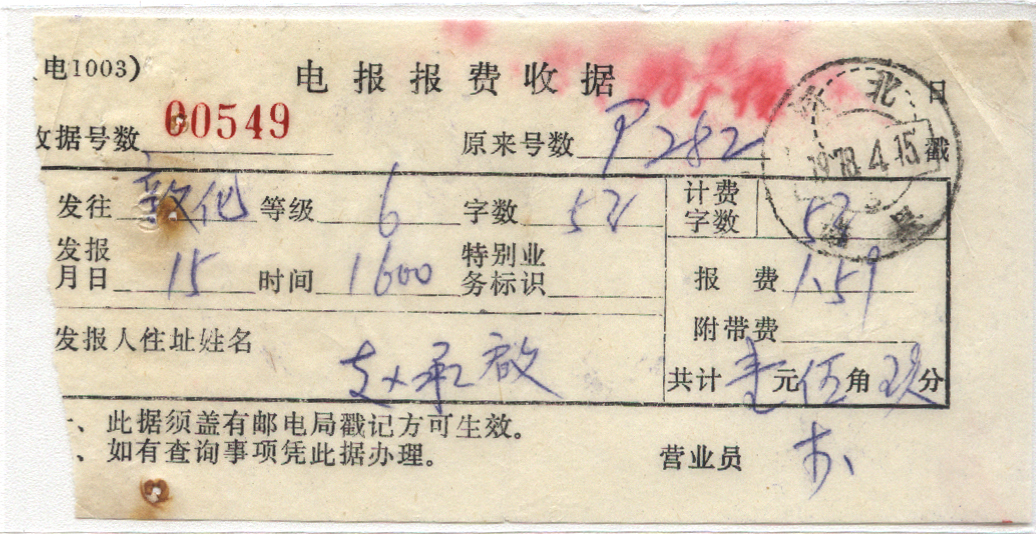 电1003)
电报报费收据
00549
收据号数
原来号数 P282
北
1978.4.15
日戳
发往 敦化 等级 6 字数 53
计费字数 53
发报月日 15 时间 1600 特别业务标识
报费 1.59
附带费
发报人住址姓名
赵承啟
共计 壹元伍角玖分
一、此据须盖有邮电局戳记方可生效。
、如有查询事项凭此据办理。
营业员